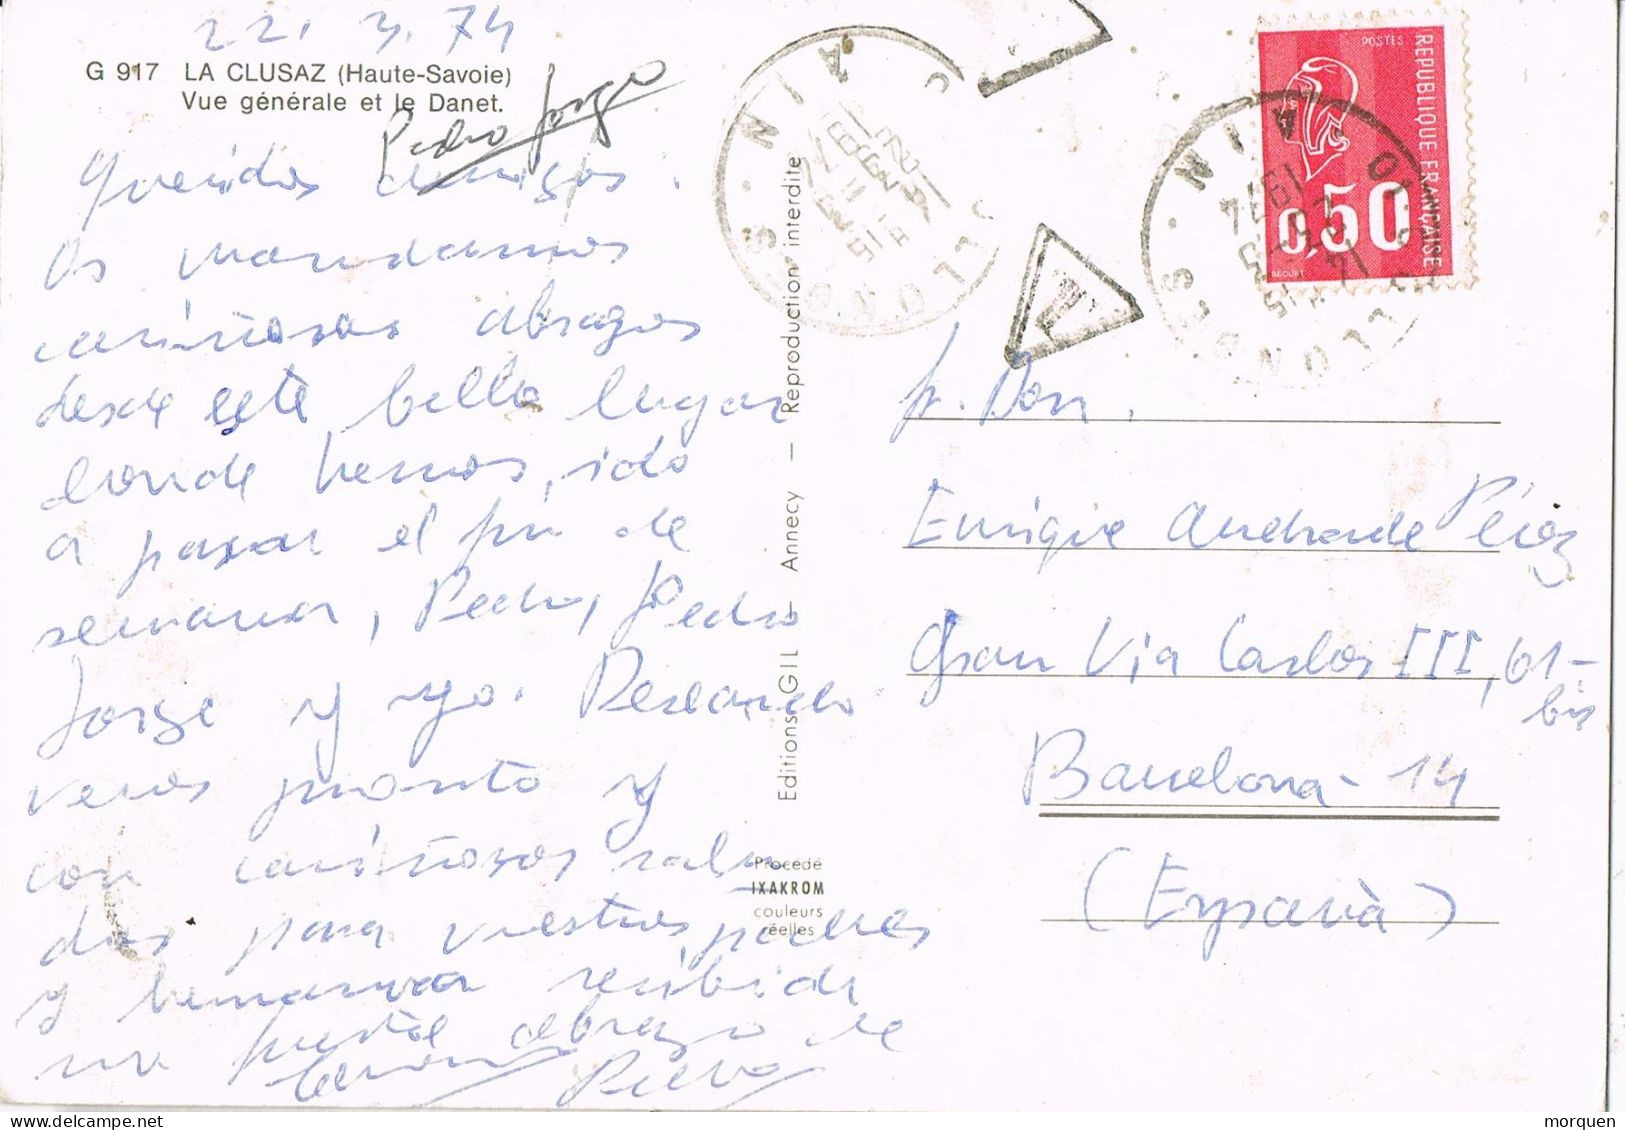 22. 3. 74
G 917 LA CLUSAZ (Haute-Savoie)
Vue générale et le Danet.
Pedro Jorge
Queridos amigos:
Os mandamos
cariñosos abrazos
desde este bello lugar
donde hemos ido
a pasar el fin de
semana, Pedro, Pedro
Jorge y yo. Deseando
veros pronto y
con cariñosos salu-
dos para vuestros padres
y hermanos recibid
un fuerte abrazo de
Pedro
Editions GIL - Annecy - Reproduction interdite
Procédé
IXAKROM
couleurs
réelles
POSTES
REPUBLIQUE FRANÇAISE
0,50
BEQUET
AIN
1974
AIN
Sr. Don.
Enrique Andrade Pérez
Gran Via Carlos III, 61-
bis
Barcelona - 14
(España)
morquen